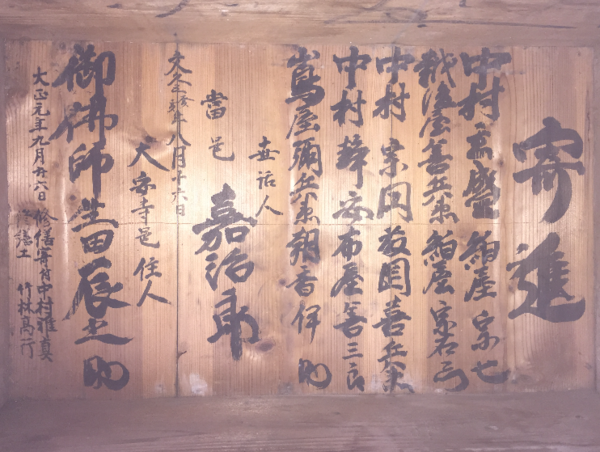 寄進
中村 盛 紺屋 宗七
越後屋善兵衛 紺屋 宗右ヱ門
中村 宗同 喜兵衛
中村 静 安布屋 善三郎
嶌屋彌兵衛 伊助
世話人
當邑 嘉治郎
文久三 亥年八月十六日
大安寺邑住人
御佛師 生田辰之助
大正元年九月廿六日 修繕寄付 中村雅真
仝 繕工 竹林高行